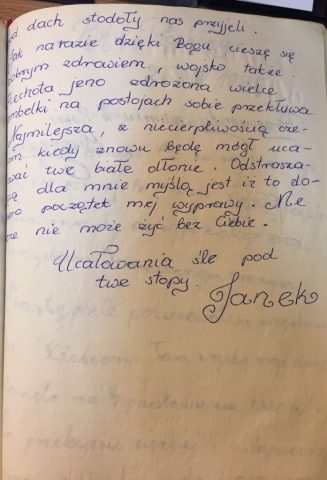 od dach stodoły nas przyjeli.
ak narazie dzięki Bogu cieszę się
obrym zdrowiem, wojsko także.
iechota jeno zdrożona wielce
ąbelki na postojach sobie przekłuwa
Najmilejsza, z niecierpliwością cze-
m kiedy znowu będę mógł uca-
wać twe białe dłonie. Odstrasza-
cą dla mnie myślą jest iż to do-
ero początek mej wyprawy. Me
ne nie może żyć bez Ciebie.
Ucałowania śle pod
twe stopy.
Janek